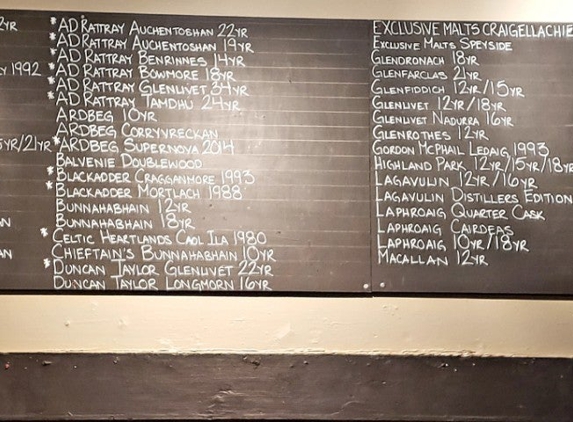 2YR
Y 1992
5YR/21YR
N
AN
*AD RATTRAY AUCHENTOSHAN 22YR
*AD RATTRAY AUCHENTOSHAN 19YR
*AD RATTRAY BENRINNES 14YR
*AD RATTRAY BOWMORE 18YR
*AD RATTRAY GLENLIVET 34YR
*AD RATTRAY TAMDHU 24YR
ARDBEG 10YR
ARDBEG CORRYVRECKAN
*ARDBEG SUPERNOVA 2014
BALVENIE DOUBLEWOOD
*BLACKADDER CRAGGANMORE 1993
*BLACKADDER MORTLACH 1988
BUNNAHABHAIN 12YR
BUNNAHABHAIN 18YR
*CELTIC HEARTLANDS CAOL ILA 1980
*CHIEFTAIN'S BUNNAHABHAIN 10YR
*DUNCAN TAYLOR GLENLIVET 22YR
DUNCAN TAYLOR LONGMORN 16YR
EXCLUSIVE MALTS CRAIGELLACHIE
EXCLUSIVE MALTS SPEYSIDE
GLENDRONACH 18YR
GLENFARCLAS 21YR
GLENFIDDICH 12YR/15YR
GLENLIVET 12YR/18YR
GLENLIVET NADURRA 16YR
GLENROTHES 12YR
GORDON MCPHAIL LEDAIG 1993
HIGHLAND PARK 12YR/15YR/18YR
LAGAVULIN 12YR/16YR
LAGAVULIN DISTILLERS EDITION
LAPHROAIG QUARTER CASK
LAPHROAIG CAIRDEAS
LAPHROAIG 10YR/18YR
MACALLAN 12YR